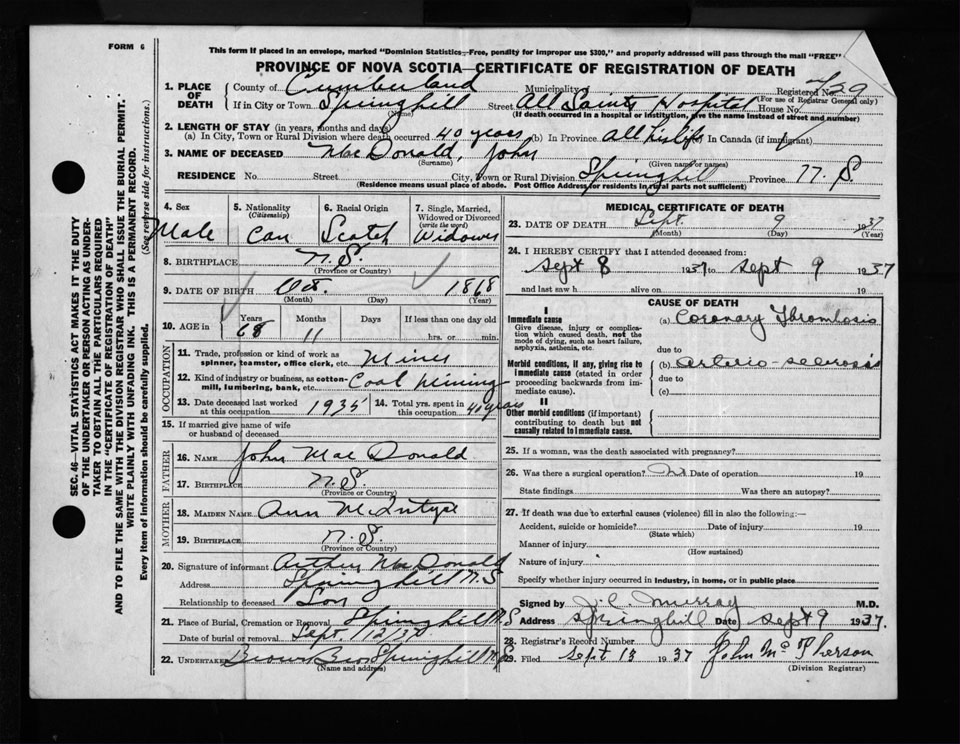 FORM 6
This form if placed in an envelope, marked "Dominion Statistics—Free, penalty for improper use $300," and properly addressed will pass through the mail "FREE"
PROVINCE OF NOVA SCOTIA—CERTIFICATE OF REGISTRATION OF DEATH
1. PLACE OF DEATH
County of Cumberland Municipality Registered No. 29
(For use of Registrar General only)
If in City or Town Springhill Street All Saints Hospital House No.
(Name) (If death occurred in a hospital or institution, give the name instead of street and number)
2. LENGTH OF STAY (in years, months and days)
(a) In City, Town or Rural Division where death occurred 40 years (b) In Province all his life In Canada (if immigrant)
3. NAME OF DECEASED MacDonald, John
(Surname) (Given name or names)
RESIDENCE No. Street City, Town or Rural Division Springhill Province N. S
(Residence means usual place of abode. Post Office Address for residents in rural parts not sufficient)
4. Sex 5. Nationality (Citizenship) 6. Racial Origin 7. Single, Married, Widowed or Divorced (write the word)
Male Can Scotch Widower
8. BIRTHPLACE N. S.
(Province or Country)
9. DATE OF BIRTH Oct. 1868
(Month) (Day) (Year)
10. AGE in Years Months Days If less than one day old
68 11 hrs. or min.
OCCUPATION
11. Trade, profession or kind of work as spinner, teamster, office clerk, etc. Miner
12. Kind of industry or business, as cotton-mill, lumbering, bank, etc. Coal Mining
13. Date deceased last worked at this occupation 1935 14. Total yrs. spent in this occupation 40 years
15. If married give name of wife or husband of deceased
FATHER
16. NAME John MacDonald
17. BIRTHPLACE N. S.
(Province or Country)
MOTHER
18. MAIDEN NAME Ann McIntyre
19. BIRTHPLACE N. S.
(Province or Country)
20. Signature of informant Arthur MacDonald
Address Springhill N. S
Relationship to deceased Son
21. Place of Burial, Cremation or Removal Springhill N. S
Date of burial or removal Sept. 12/37
22. UNDERTAKER Brown Bros Springhill N. S
(Name and address)
MEDICAL CERTIFICATE OF DEATH
23. DATE OF DEATH Sept. 9 1937
(Month) (Day) (Year)
24. I HEREBY CERTIFY that I attended deceased from:
Sept 8 1937 to Sept 9 1937
and last saw h alive on 19
CAUSE OF DEATH
Immediate cause
Give disease, injury or complication which caused death, not the mode of dying, such as heart failure, asphyxia, asthenia, etc.
(a) Coronary Thrombosis
due to
Morbid conditions, if any, giving rise to immediate cause (stated in order proceeding backwards from immediate cause).
(b) arterio-sclerosis
due to
(c)
II
Other morbid conditions (if important) contributing to death but not causally related to immediate cause.
25. If a woman, was the death associated with pregnancy?
26. Was there a surgical operation? No Date of operation 19
State findings Was there an autopsy?
27. If death was due to external causes (violence) fill in also the following:—
Accident, suicide or homicide? Date of injury 19
(State which)
Manner of injury
(How sustained)
Nature of injury
Specify whether injury occurred in industry, in home, or in public place
Signed by J. C. Murray M.D.
Address Springhill Date Sept 9 1937.
28. Registrar's Record Number
29. Filed Sept 13 1937 John McPherson
(Division Registrar)
SEC. 46—VITAL STATISTICS ACT MAKES IT THE DUTY
OF THE UNDERTAKER OR PERSON ACTING AS UNDER-
TAKER TO OBTAIN ALL THE PARTICULARS REQUIRED
IN THE "CERTIFICATE OF REGISTRATION OF DEATH"
AND TO FILE THE SAME WITH THE DIVISION REGISTRAR WHO SHALL ISSUE THE BURIAL PERMIT.
WRITE PLAINLY WITH UNFADING INK. THIS IS A PERMANENT RECORD.
Every item of information should be carefully supplied. (See reverse side for instructions.)